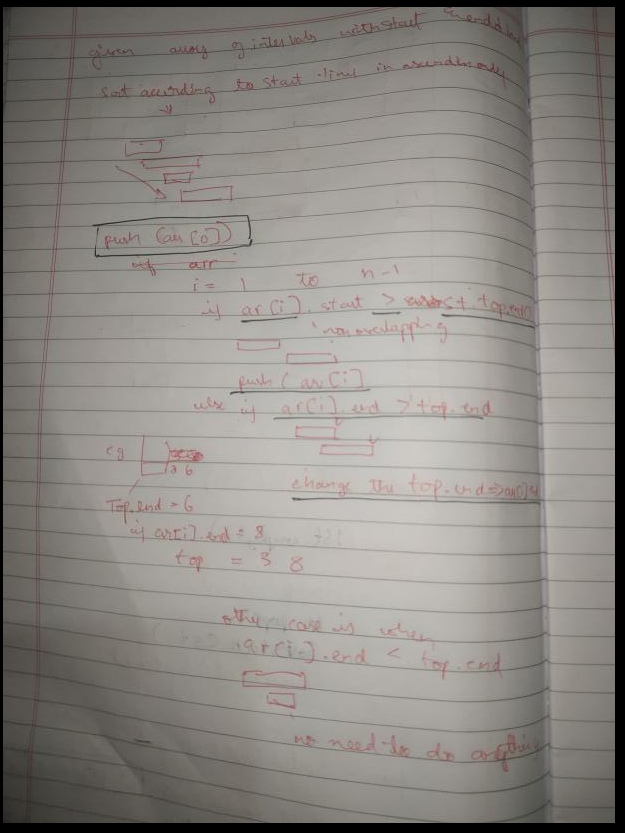 given array of intervals with start and end
sort according to start time in ascending order
push (arr [0])
if arr
i = 1 to n-1
if ar[i]. start > st. top.end
non overlapping
push ( ar[i]
else if ar[i]. end > top. end
eg
3 6
change the top.end =>
Top.end = 6
if ar[i].end = 8
top = 3 8
other case is when
ar[i].end < top.end
no need to do anything